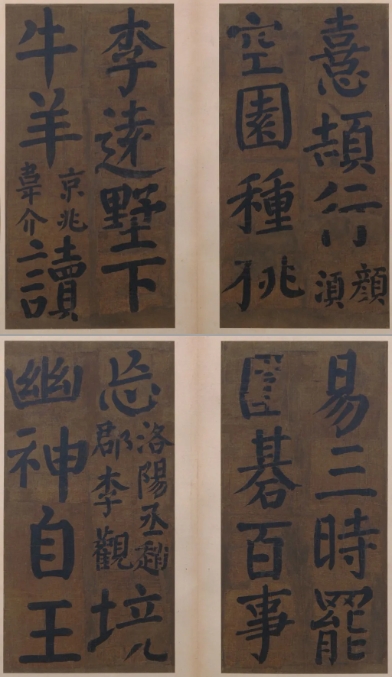 憙頡行顔湏
空園種桃
李遠墅下
牛羊京兆韋介讀
易三時罷
圍碁百事
忘洛陽丞趙郡李觀境
幽神自王